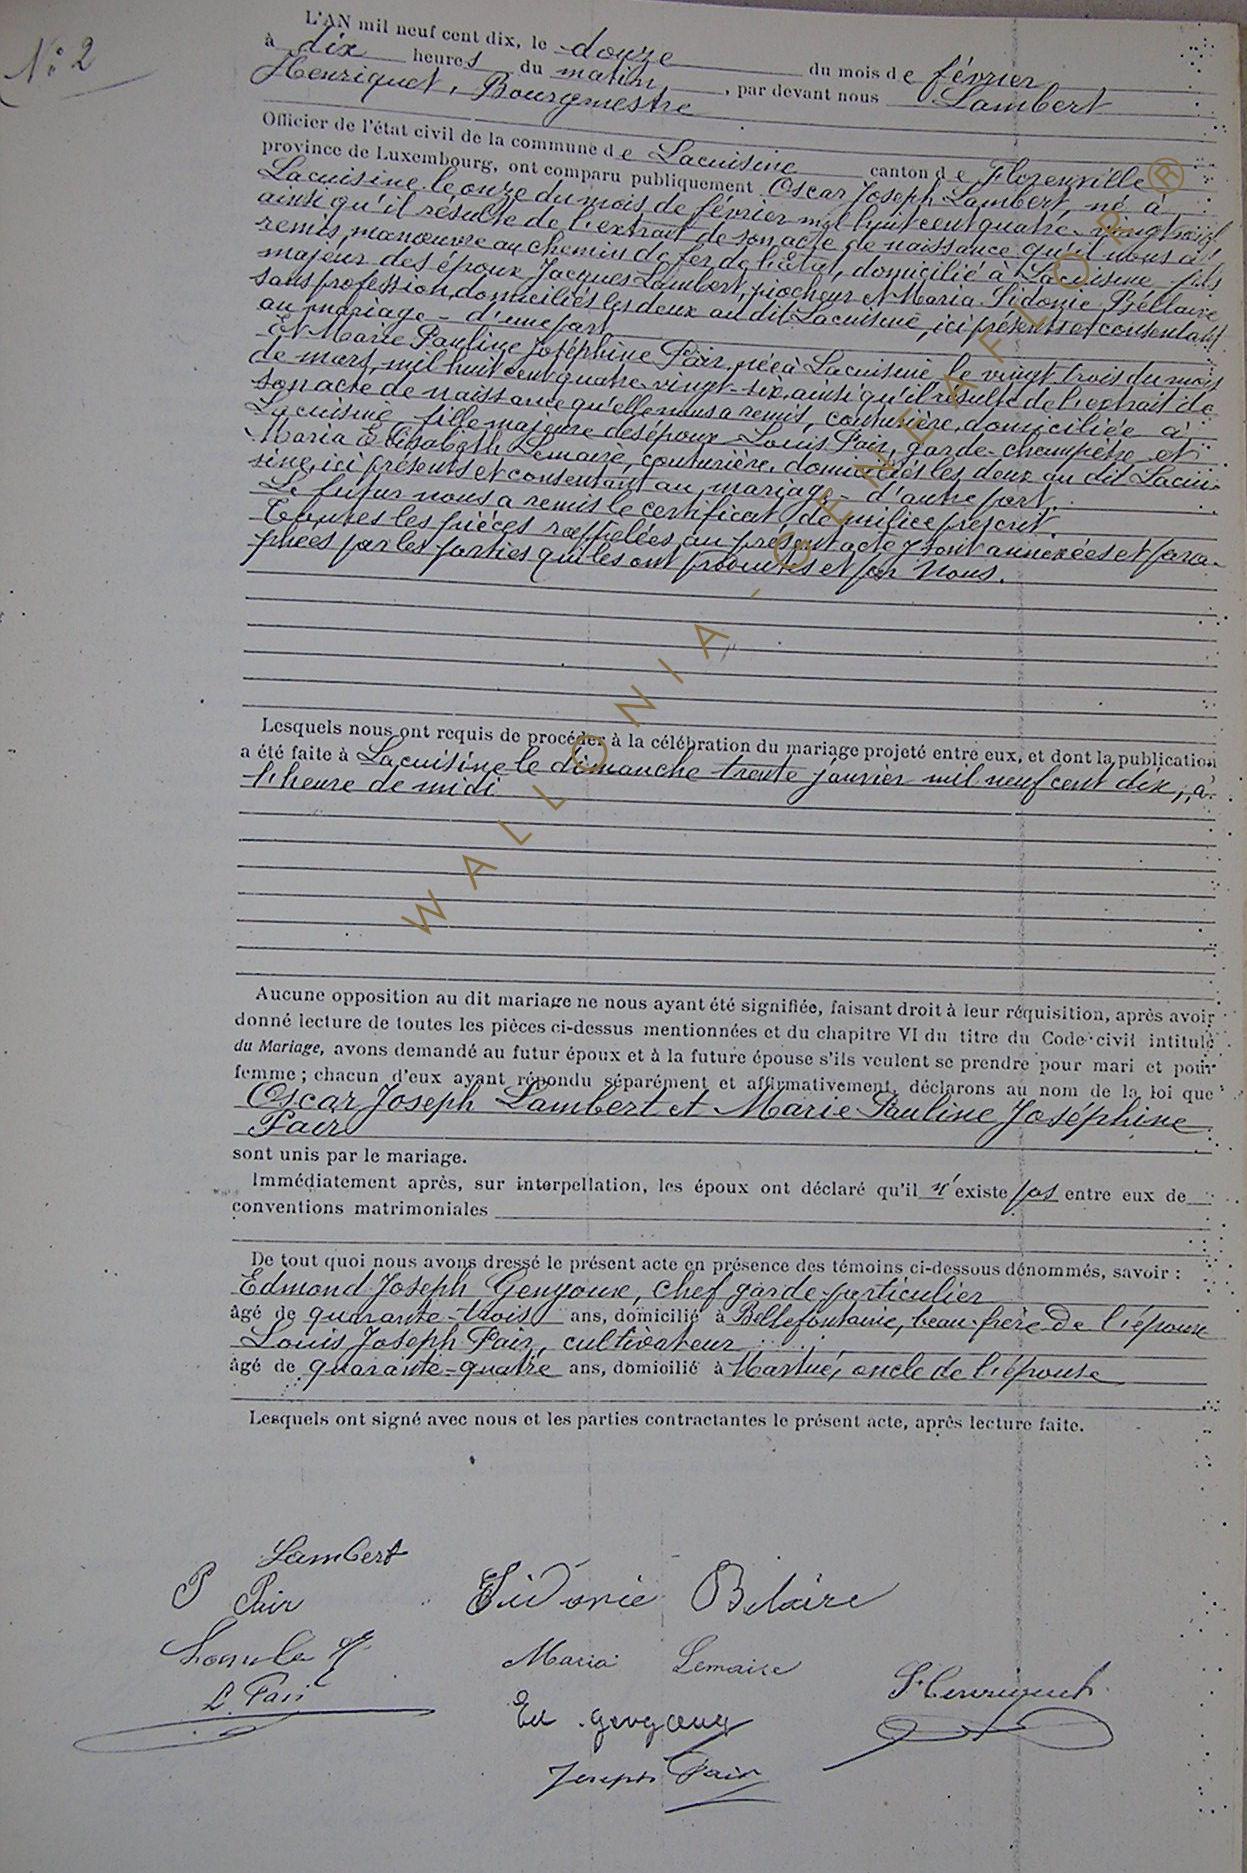 N° 2
L'AN mil neuf cent dix, le douze du mois de février
à dix heures du matin, par devant nous Lambert
Henriquet, Bourgmestre
Officier de l'état civil de la commune de Lacuisine canton de Florenville
province de Luxembourg, ont comparu publiquement Oscar Joseph Lambert, né à
Lacuisine le onze du mois de février mil huit cent quatre-vingt
ainsi qu'il résulte de l'extrait de son acte de naissance qu'il nous a
remis, manœuvre au chemin de fer de l'Etat, domicilié à Lacuisine fils
majeur des époux Jacques Lambert, piocheur et Maria Sidonie Bellaire
sans profession, domiciliés les deux au dit Lacuisine, ici présents et consentant
au mariage - d'une part
Et Marie Pauline Joséphine Pair, née à Lacuisine le vingt trois du mois
de mars, mil huit cent quatre-vingt-six, ainsi qu'il résulte de l'extrait de
son acte de naissance qu'elle nous a remis, couturière, domiciliée à
Lacuisine fille majeure des époux Louis Pair, garde-champêtre et
Maria Elisabeth Lemaire, couturière, domiciliés les deux au dit Lacui-
sine, ici présents et consentant au mariage - d'autre part.
Le futur nous a remis le certificat de milice prescrit.
Toutes les pièces rappelées au présent acte y sont annexées et para-
phées par les parties qui les ont produites et par Nous.
Lesquels nous ont requis de procéder à la célébration du mariage projeté entre eux, et dont la publication
a été faite à Lacuisine le dimanche trente janvier mil neuf cent dix, à
l'heure de midi
Aucune opposition au dit mariage ne nous ayant été signifiée, faisant droit à leur réquisition, après avoir
donné lecture de toutes les pièces ci-dessus mentionnées et du chapitre VI du titre du Code civil intitulé
du Mariage, avons demandé au futur époux et à la future épouse s'ils veulent se prendre pour mari et pour
femme ; chacun d'eux ayant répondu séparément et affirmativement, déclarons au nom de la loi que
Oscar Joseph Lambert et Marie Pauline Joséphine
Pair
sont unis par le mariage.
Immédiatement après, sur interpellation, les époux ont déclaré qu'il n'existe pas entre eux de
conventions matrimoniales
De tout quoi nous avons dressé le présent acte en présence des témoins ci-dessous dénommés, savoir :
Edmond Joseph Gengoux, chef garde-particulier
âgé de quarante-trois ans, domicilié à Bellefontaine, beau-frère de l'épouse
Louis Joseph Pair, cultivateur
âgé de quarante-quatre ans, domicilié à Martué, oncle de l'épouse
Lesquels ont signé avec nous et les parties contractantes le présent acte, après lecture faite.
Lambert
P Pair
Sidonie Belaire
Maria Lemaire
L. Pair
L Henriquet
Ed. Gengoux
Joseph Pair
WALLONIA-GENEAFLOR®